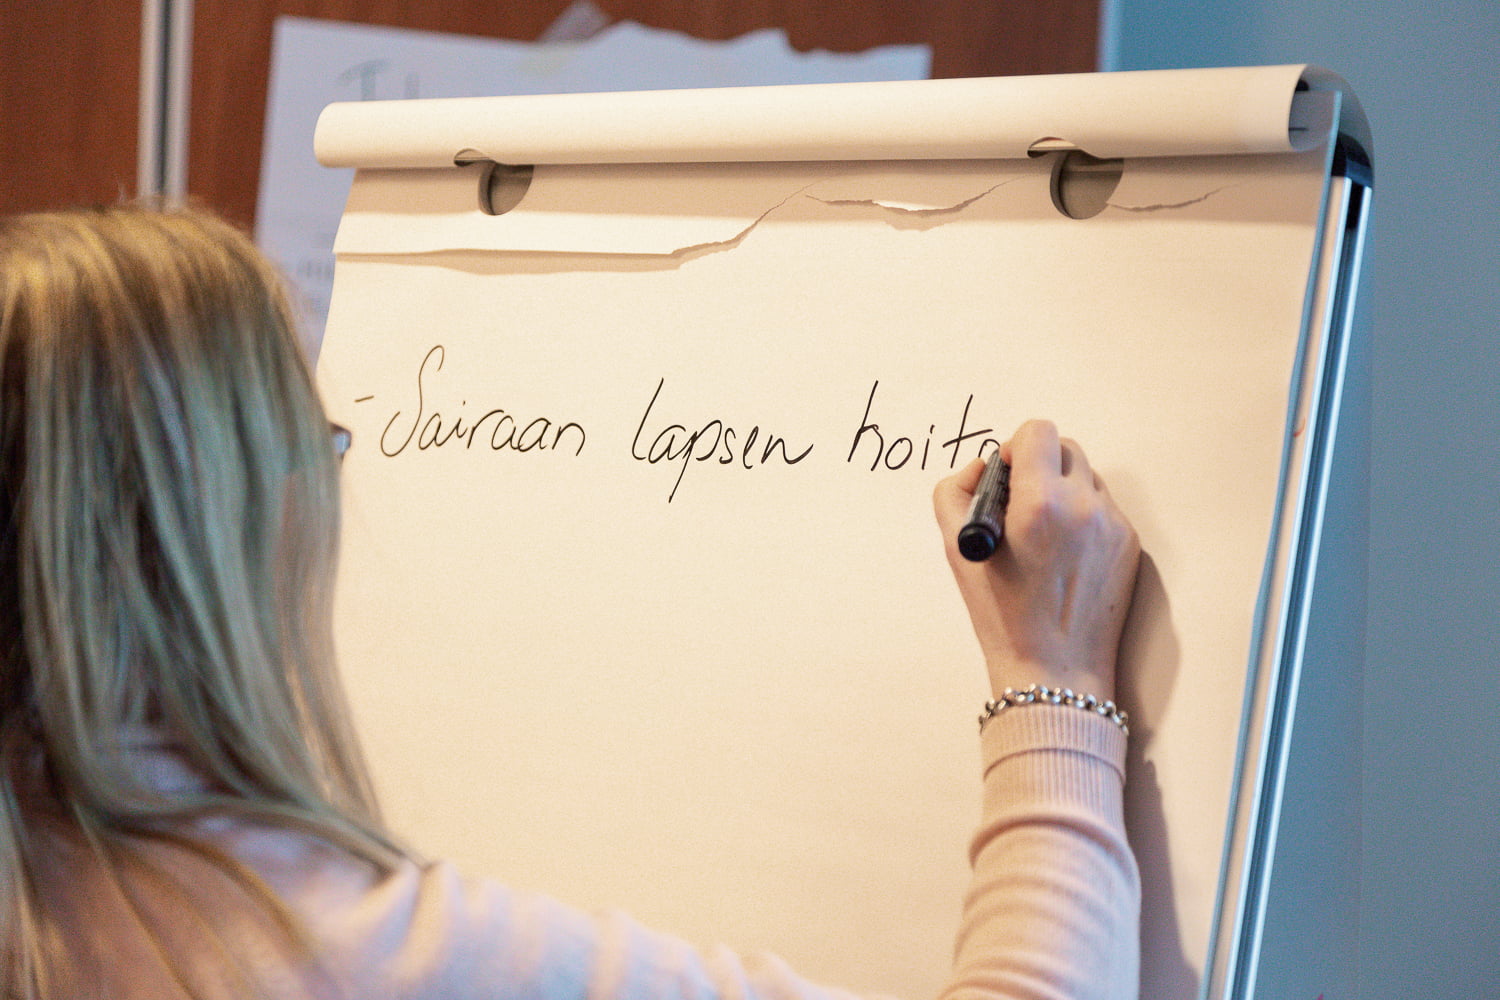 - Sairaan lapsen hoito